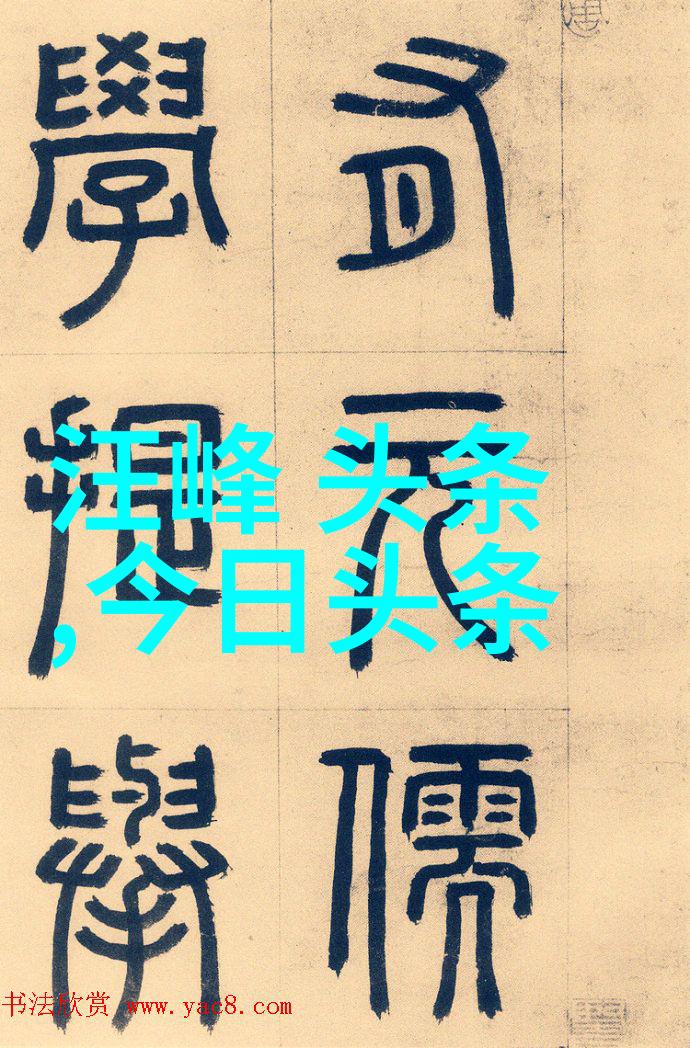 有元儒
學提舉
汪峰 头条
,今日头条
书法欣赏 www.yac8.com